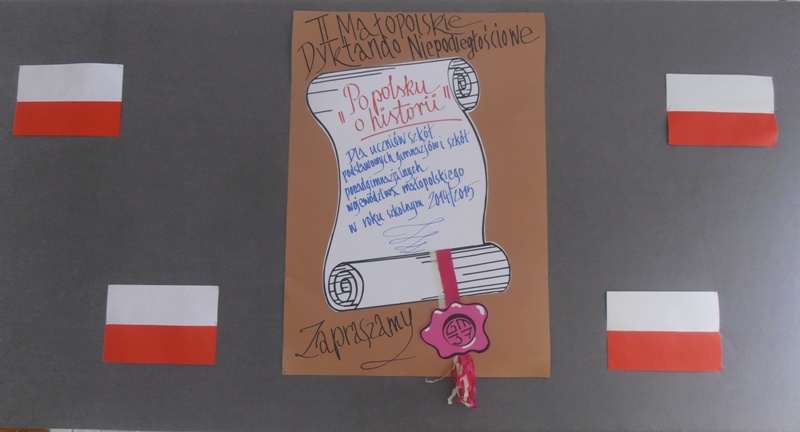 II Małopolskie
Dyktando Niepodległościowe
"Po polsku
o historii"
Dla uczniów szkół
podstawowych gimnazjów i szkół
ponadgimnazjalnych
województwa małopolskiego
w roku szkolnym 2014/2015
Zapraszamy
GIM
37